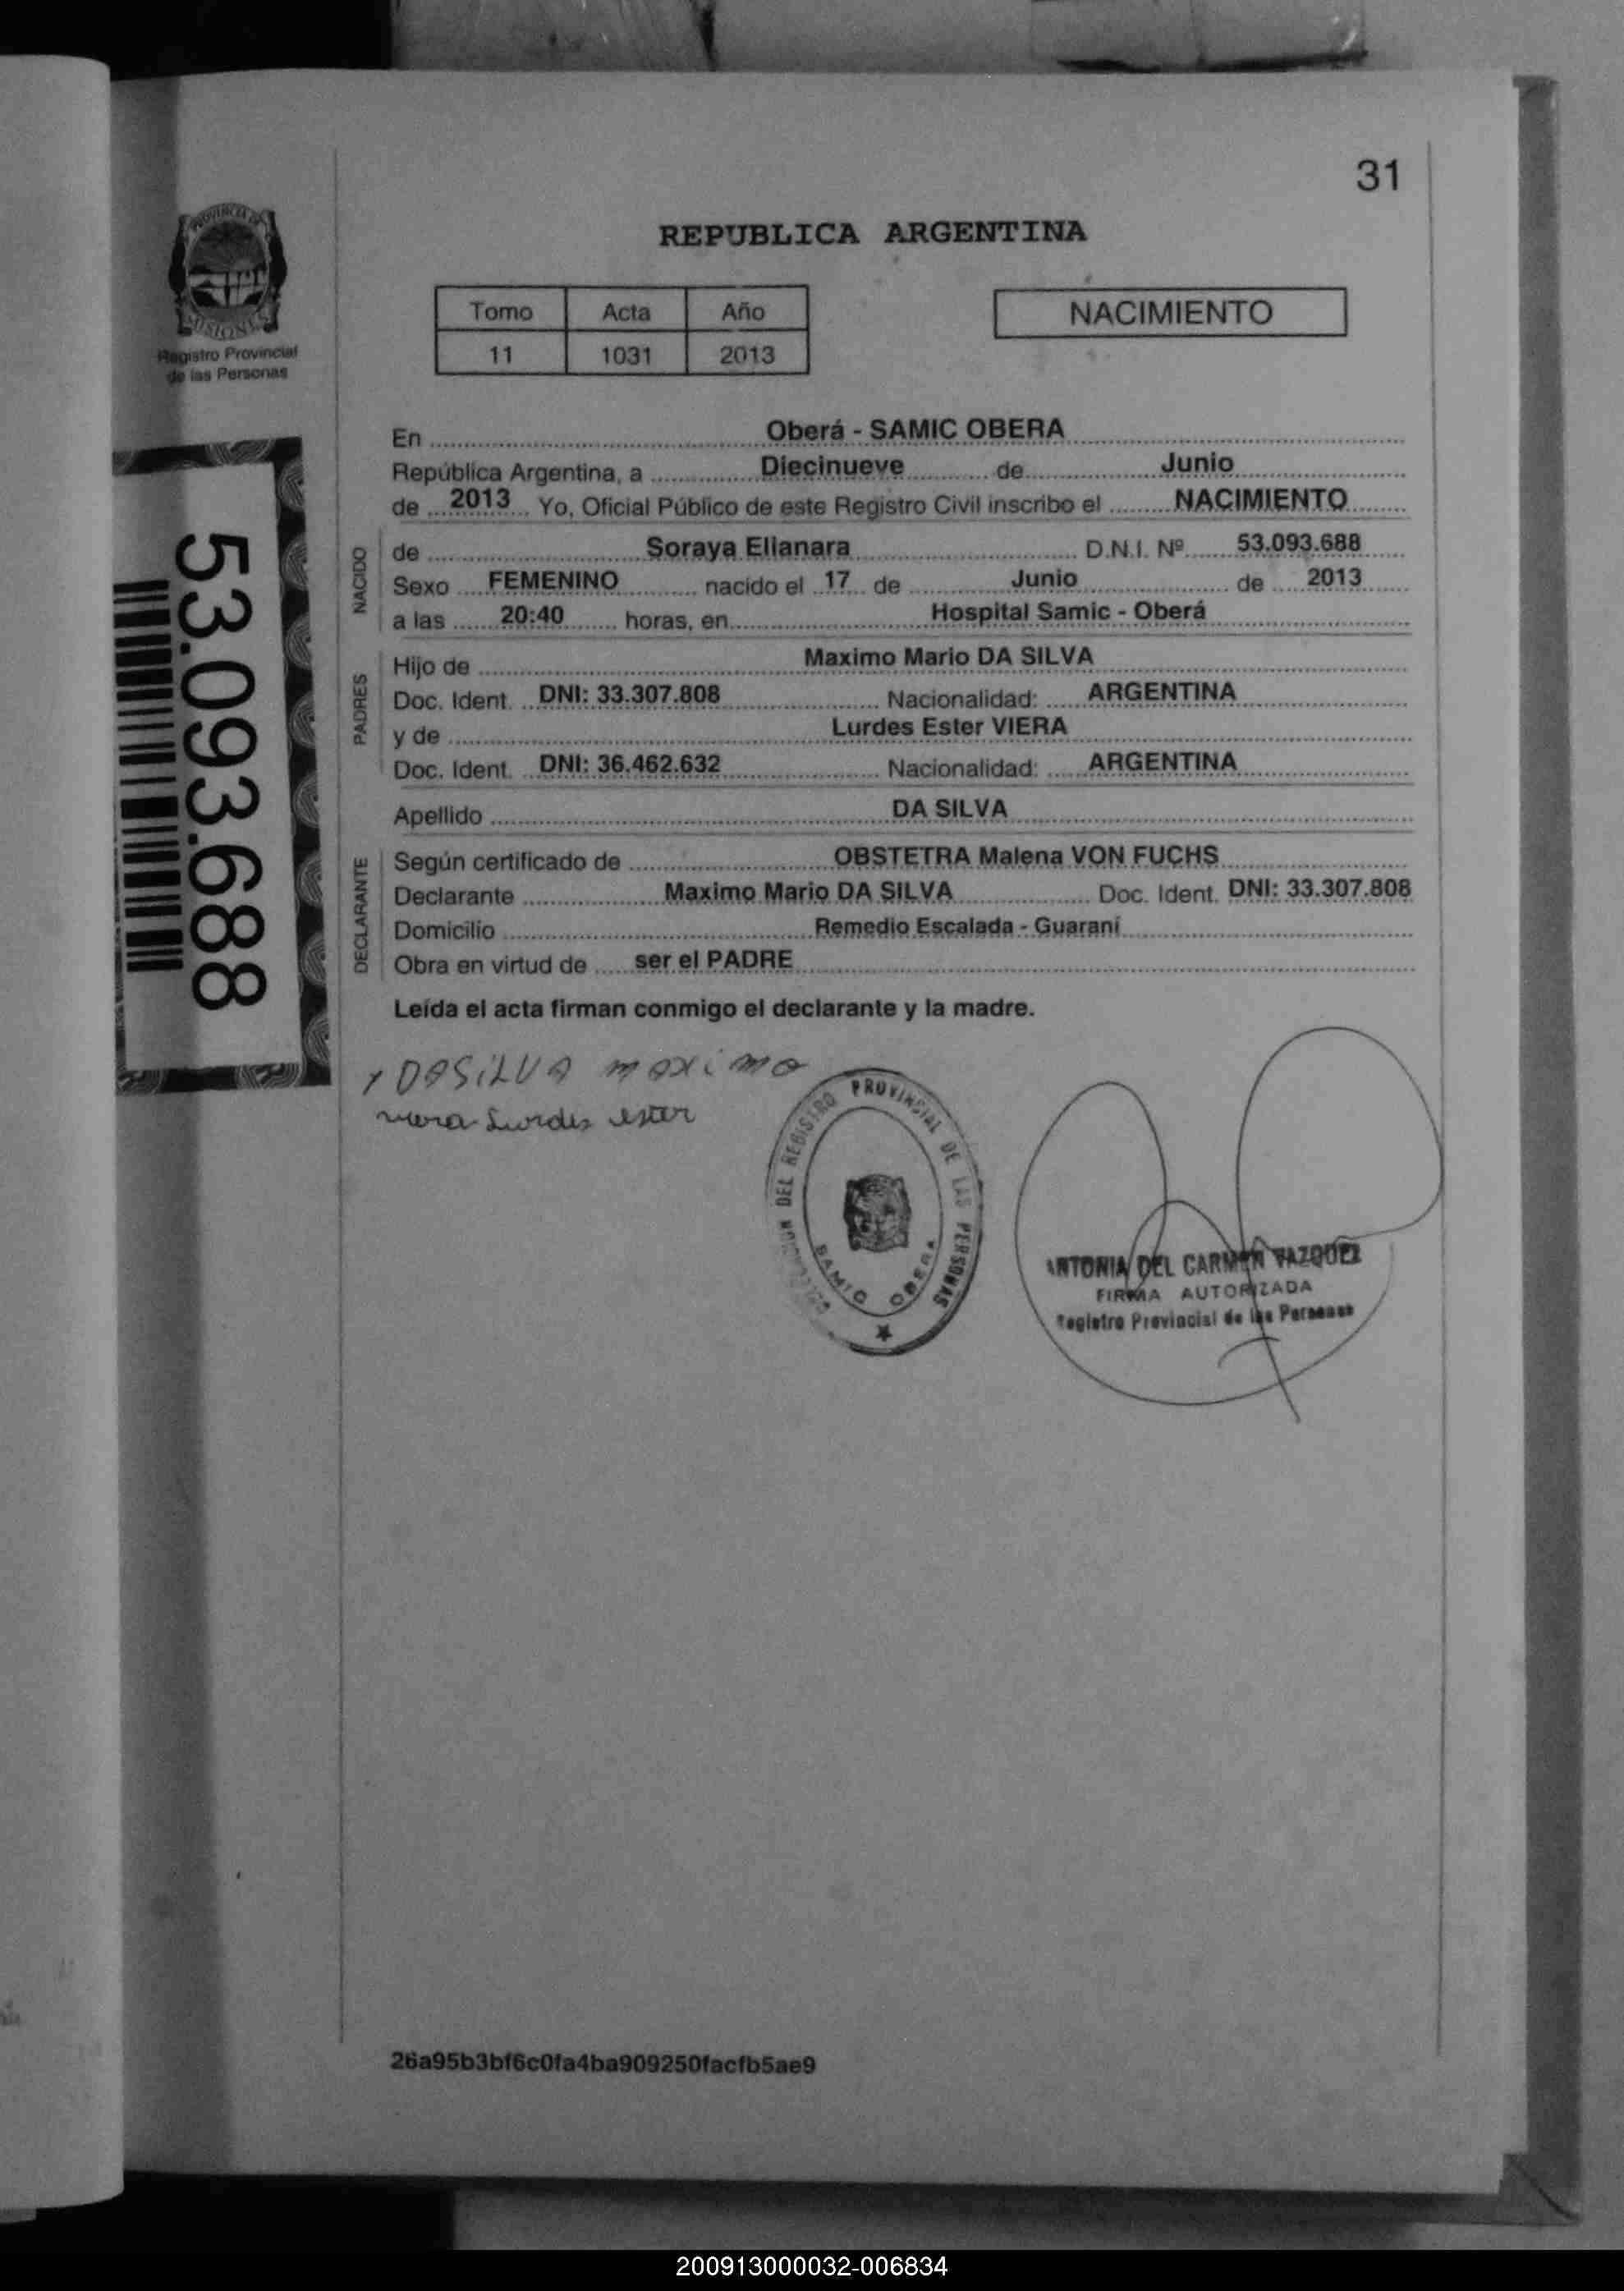 31
PROVINCIA DE
MISIONES
Registro Provincial
de las Personas
REPUBLICA ARGENTINA
Tomo Acta Año
11 1031 2013
NACIMIENTO
53.093.688
En Oberá - SAMIC OBERA
República Argentina, a Diecinueve de Junio
de 2013 Yo, Oficial Público de este Registro Civil inscribo el NACIMIENTO
NACIDO
de Soraya Elianara D.N.I. Nº 53.093.688
Sexo FEMENINO nacido el 17 de Junio de 2013
a las 20:40 horas, en Hospital Samic - Oberá
PADRES
Hijo de Maximo Mario DA SILVA
Doc. Ident. DNI: 33.307.808 Nacionalidad: ARGENTINA
y de Lurdes Ester VIERA
Doc. Ident. DNI: 36.462.632 Nacionalidad: ARGENTINA
Apellido DA SILVA
DECLARANTE
Según certificado de OBSTETRA Malena VON FUCHS
Declarante Maximo Mario DA SILVA Doc. Ident. DNI: 33.307.808
Domicilio Remedio Escalada - Guaraní
Obra en virtud de ser el PADRE
Leída el acta firman conmigo el declarante y la madre.
DASiLVA maximo
viera Lurdes ester
DEL REGISTRO PROVINCIAL DE LAS PERSONAS
SAMIC OBERA
ANTONIA DEL CARMEN VAZQUEZ
FIRMA AUTORIZADA
Registro Provincial de las Personas
26a95b3bf6c0fa4ba909250facfb5ae9
200913000032-006834